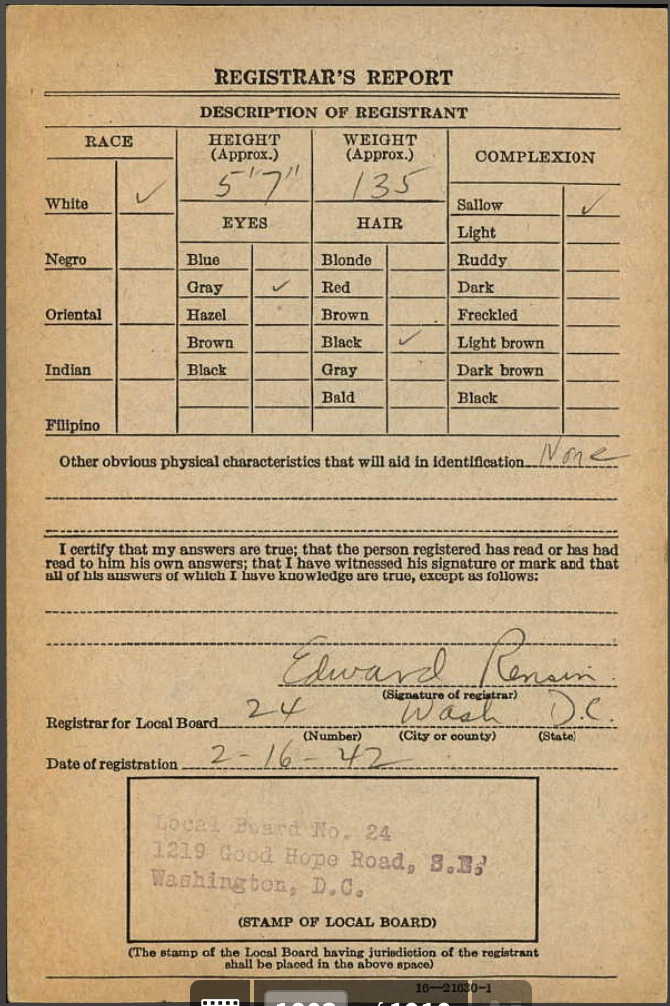 REGISTRAR'S REPORT
DESCRIPTION OF REGISTRANT
RACE
HEIGHT
(Approx.)
WEIGHT
(Approx.)
COMPLEXION
5'7"
135
White ✓
Sallow ✓
EYES
HAIR
Light
Negro
Blue
Blonde
Ruddy
Gray ✓
Red
Dark
Oriental
Hazel
Brown
Freckled
Brown
Black ✓
Light brown
Indian
Black
Gray
Dark brown
Bald
Black
Filipino
Other obvious physical characteristics that will aid in identification None
I certify that my answers are true; that the person registered has read or has had
read to him his own answers; that I have witnessed his signature or mark and that
all of his answers of which I have knowledge are true, except as follows:
Edward Rensin
(Signature of registrar)
Registrar for Local Board 24 Wash D.C.
(Number) (City or county) (State)
Date of registration 2-16-42
Local Board No. 24
1219 Good Hope Road, S.E.,
Washington, D.C.
(STAMP OF LOCAL BOARD)
(The stamp of the Local Board having jurisdiction of the registrant
shall be placed in the above space)
16—21630-1